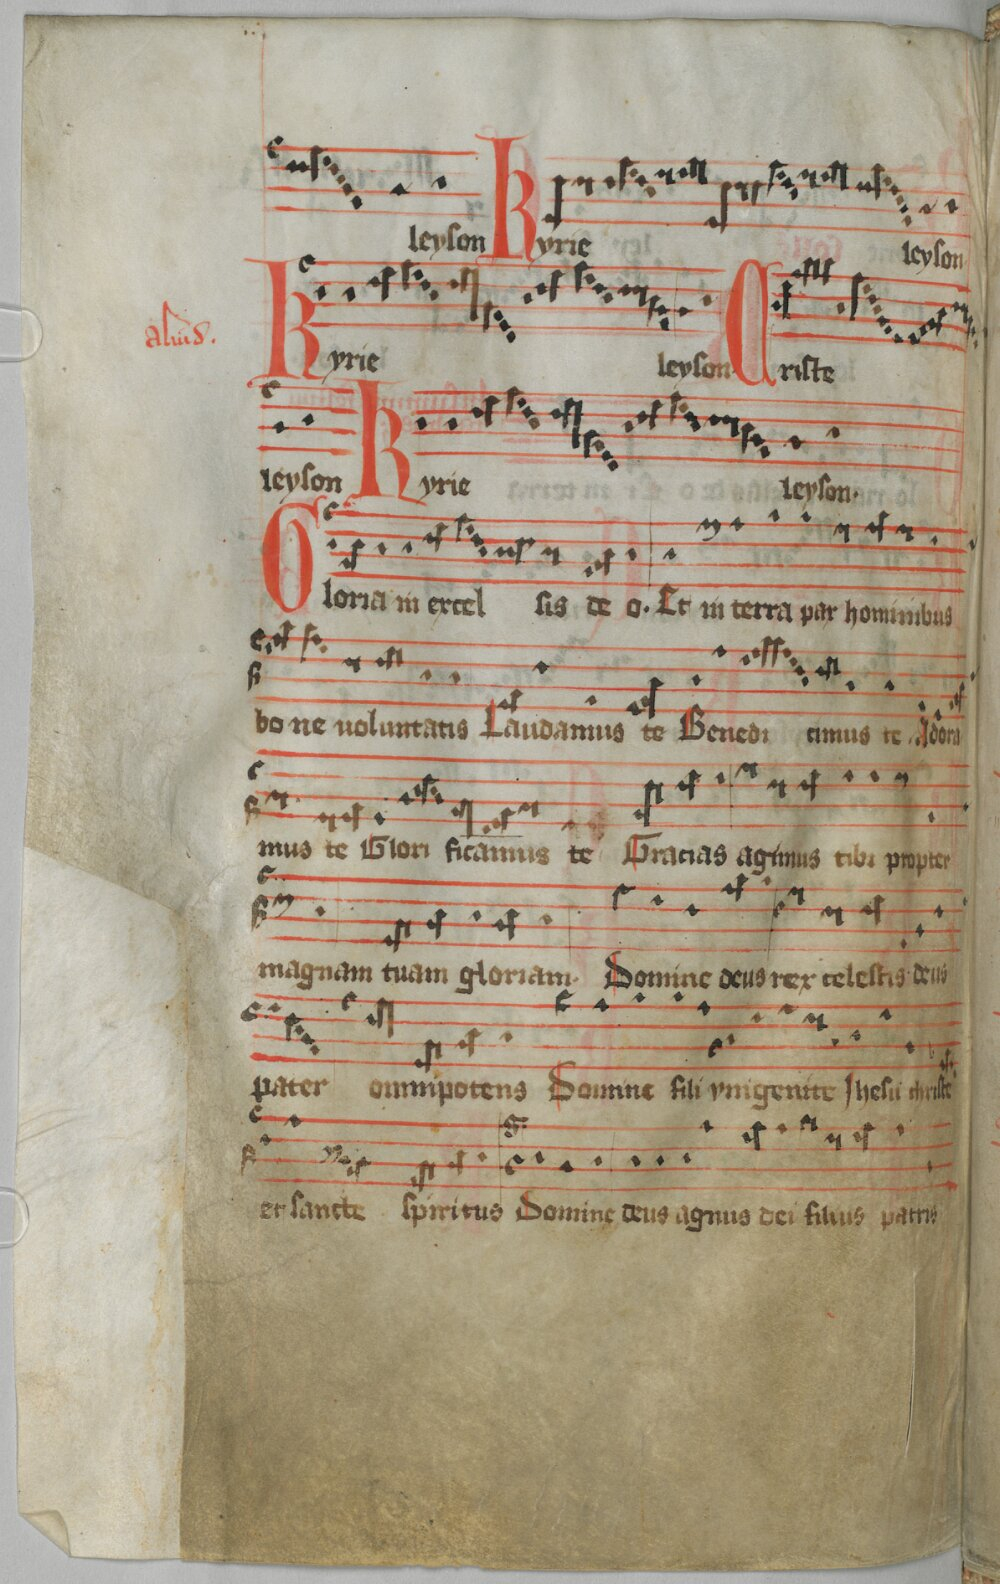 leyson Kyrie leyson
aliud.
Kyrie leyson Criste
leyson Kyrie leyson.
Gloria in excel sis de o. Et in terra pax hominibus
bo ne uoluntatis Laudamus te Benedi cimus te Adora
mus te Glori ficamus te Gracias agimus tibi propter
magnam tuam gloriam. Domine deus rex celestis deus
pater omnipotens Domine fili ynigenite Jhesu christe
et sancte spiritus Domine deus agnus dei filius patris